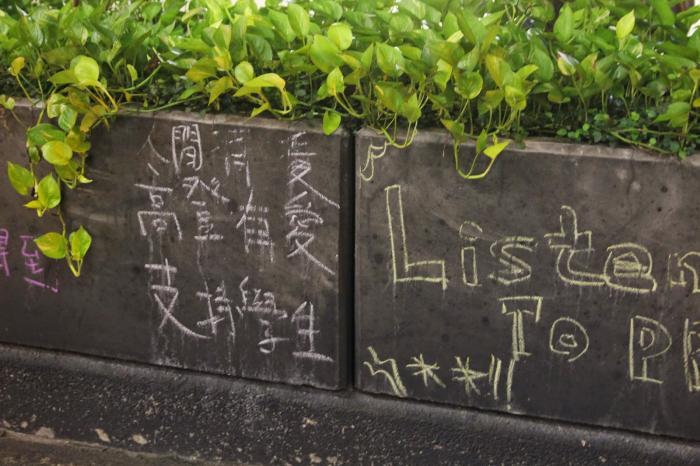 人間有愛
高登有愛
支持學生
Listen
To